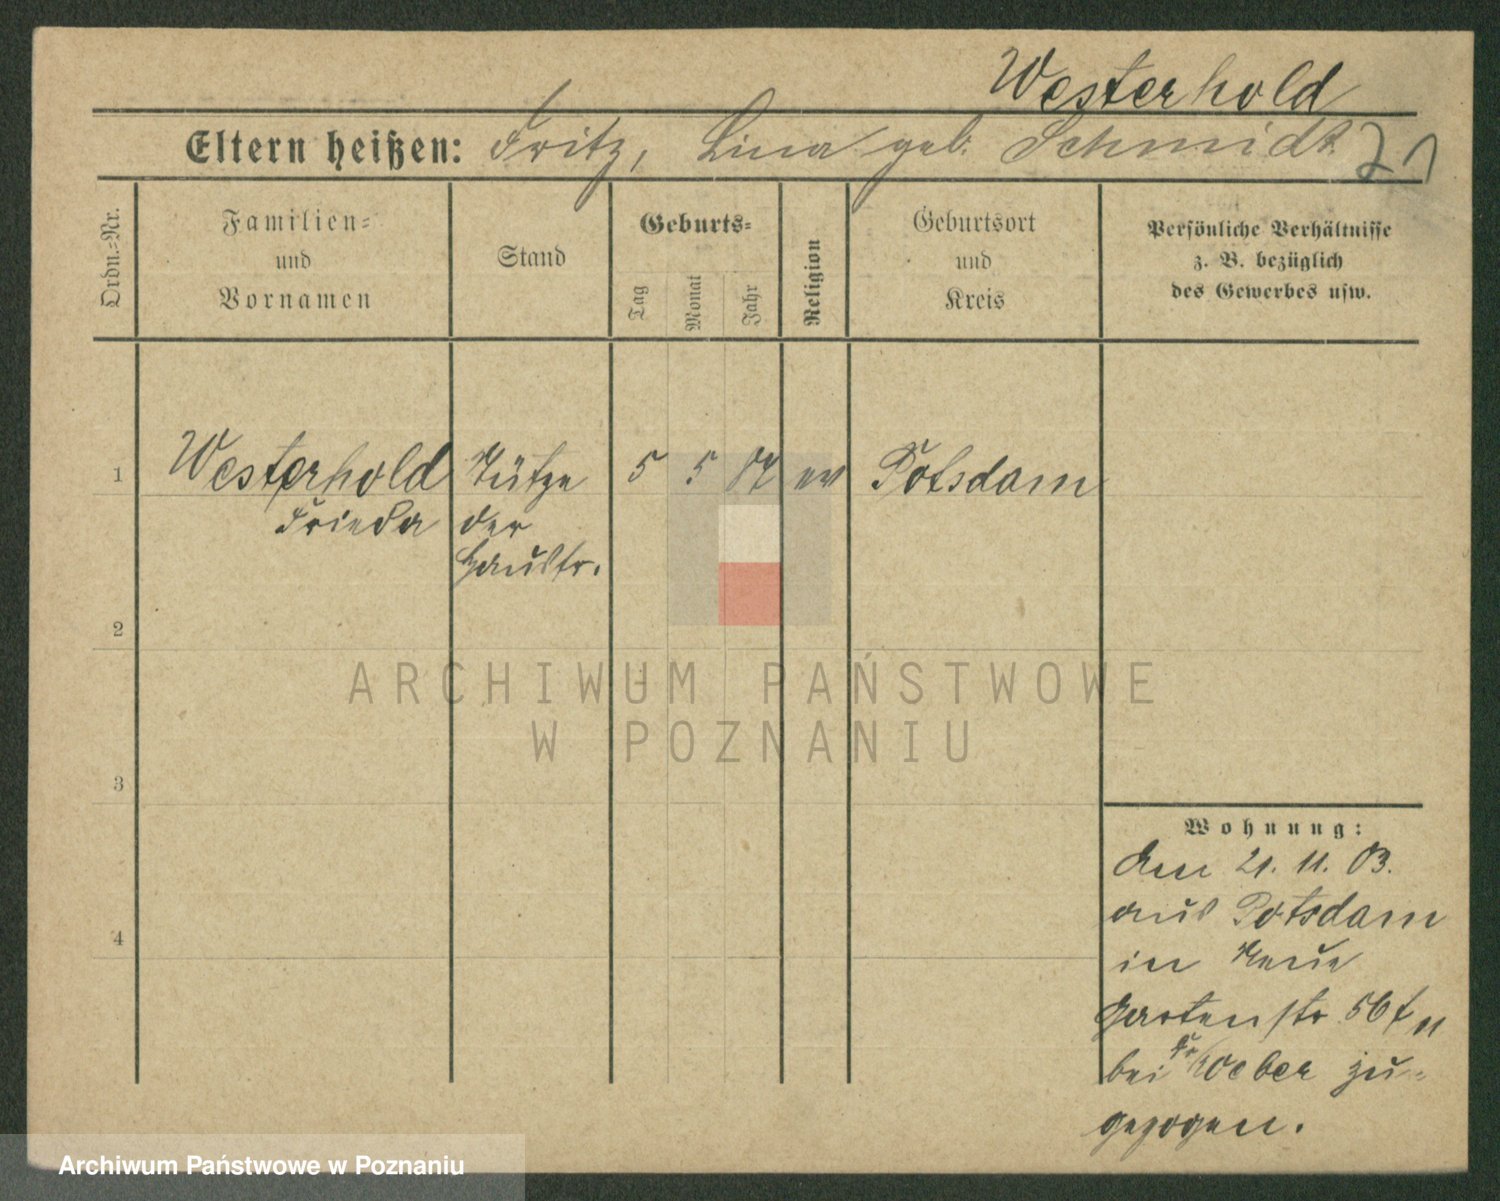 Westerhold
Eltern heißen: Fritz, Lina geb. Schmidt.
Ordn.=Nr.
Familien=
und
Vornamen
Stand
Geburts=
Tag
Monat
Jahr
Religion
Geburtsort
und
Kreis
Persönliche Verhältnisse
z. B. bezüglich
des Gewerbes usw.
1 Westerhold Stütze 5 5 ev Potsdam
Frieda der
Hausfr.
2
3
4
Wohnung:
den 21. 11. 03.
aus Potsdam
in Neue
Gartenstr. 56
bei Fr Weber zu=
gezogen.
ARCHIWUM PAŃSTWOWE
W POZNANIU
Archiwum Państwowe w Poznaniu